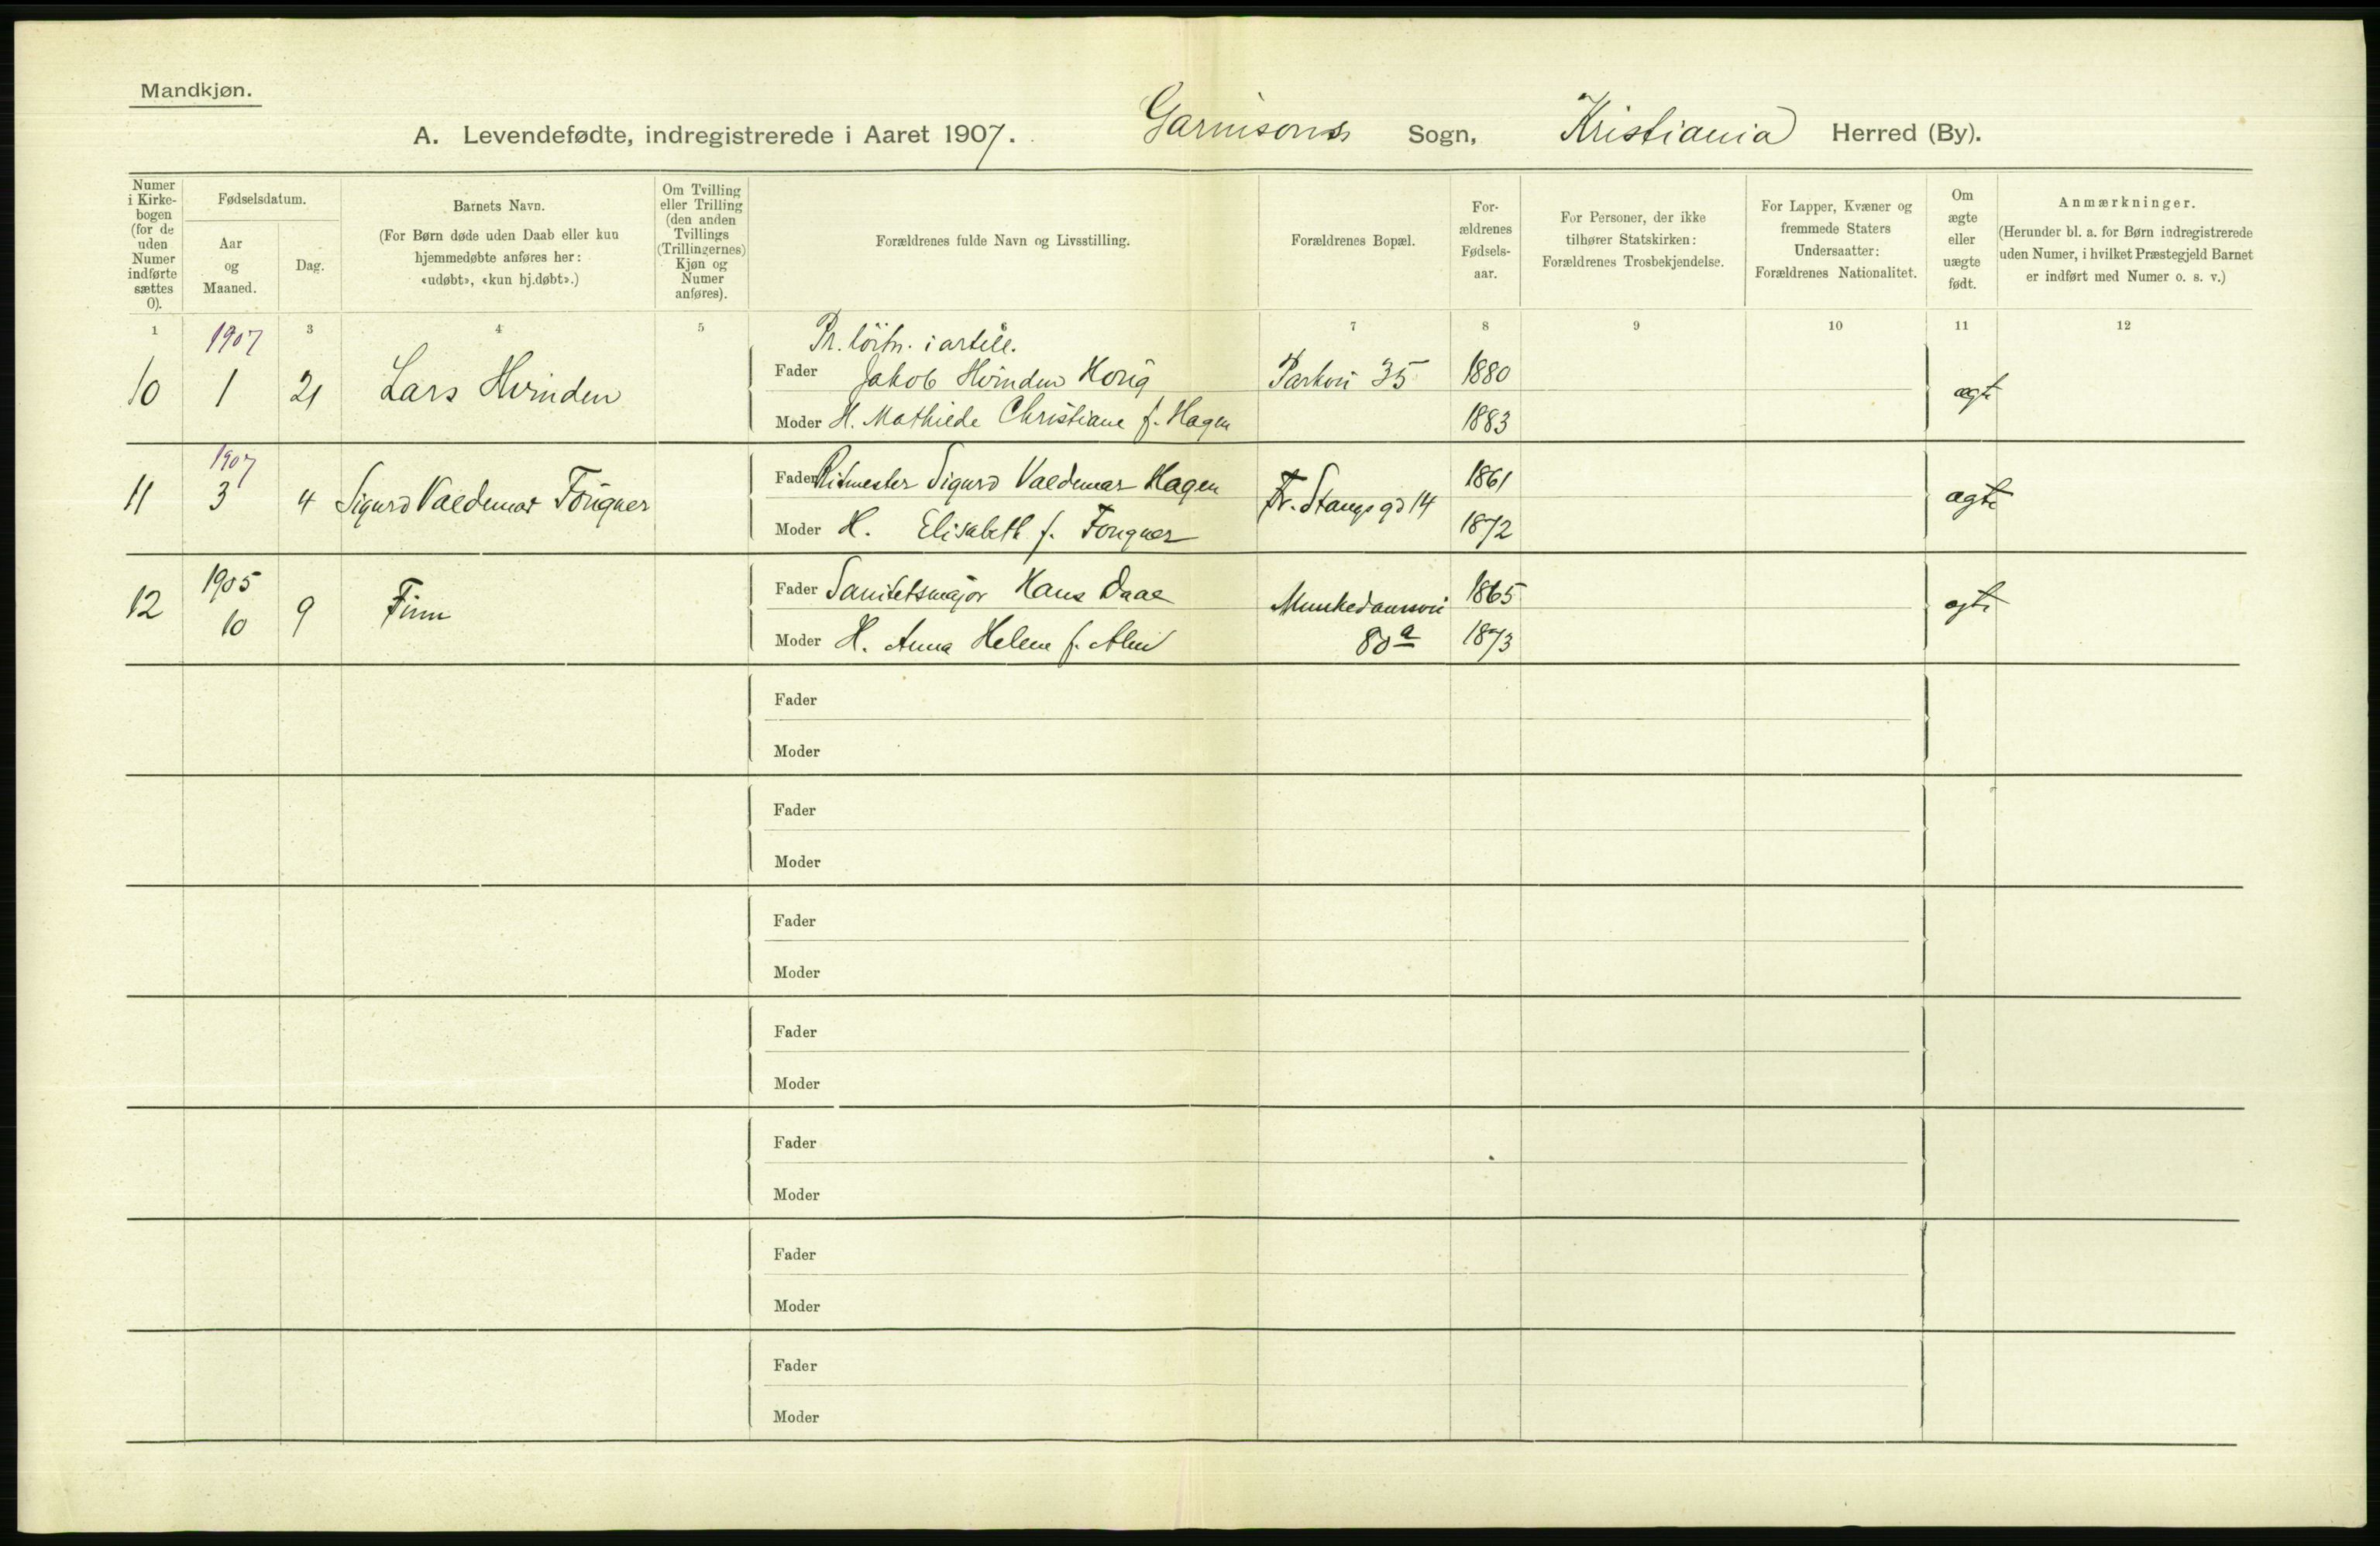 Mandkjøn.
A. Levendefødte, indregistrerede i Aaret 1907. Garnisons Sogn, Kristiania Herred (By).
Numer i Kirkebogen (for de uden Numer indførte sættes 0).
Fødselsdatum.
Aar og Maaned.
Dag.
Barnets Navn.
(For Børn døde uden Daab eller kun hjemmedøbte anføres her: «udøbt», «kun hj.døbt».)
Om Tvilling eller Trilling (den anden Tvillings (Trillingernes) Kjøn og Numer anføres).
Forældrenes fulde Navn og Livsstilling.
Forældrenes Bopæl.
Forældrenes Fødselsaar.
For Personer, der ikke tilhører Statskirken: Forældrenes Trosbekjendelse.
For Lapper, Kvæner og fremmede Staters Undersaatter: Forældrenes Nationalitet.
Om ægte eller uægte født.
Anmærkninger.
(Herunder bl. a. for Børn indregistrerede uden Numer, i hvilket Præstegjeld Barnet er indført med Numer o. s. v.)
1 3 4 5 7 8 9 10 11 12
1907 Pr. löitn. i artill.
10 1 21 Lars Hvinden Fader Jakob Hvinden Houg Parkvei 35 1880 ægte
Moder H. Mathilde Christiane f. Hagen 1883
1907
11 3 4 Sigurd Valdemar Fougner Fader Ritmester Sigurd Valdemar Hagen Fr. Stangs gd 14 1861 ægte
Moder H. Elisabeth f. Fougner 1872
1905
12 10 9 Finn Fader Sanitetsmajor Hans Daae Munkedamsvei 1865 ægte
Moder H. Anna Helene f. 80a 1873
Fader
Moder
Fader
Moder
Fader
Moder
Fader
Moder
Fader
Moder
Fader
Moder
Fader
Moder